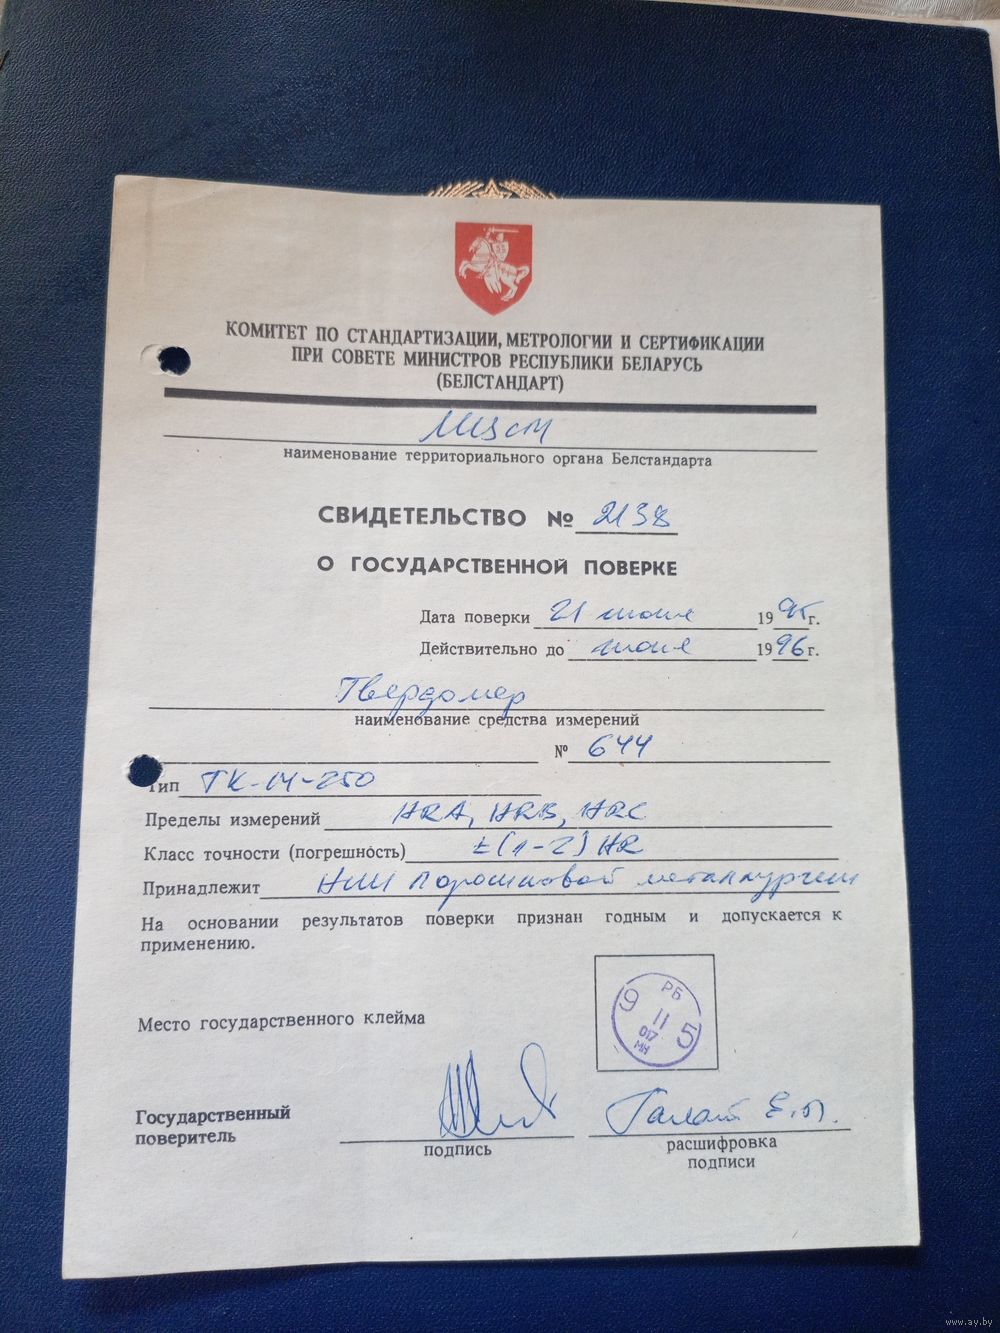 КОМИТЕТ ПО СТАНДАРТИЗАЦИИ, МЕТРОЛОГИИ И СЕРТИФИКАЦИИ
ПРИ СОВЕТЕ МИНИСТРОВ РЕСПУБЛИКИ БЕЛАРУСЬ
(БЕЛСТАНДАРТ)
МЦСМ
наименование территориального органа Белстандарта
СВИДЕТЕЛЬСТВО № 2138
О ГОСУДАРСТВЕННОЙ ПОВЕРКЕ
Дата поверки 21 июня 1995 г.
Действительно до июня 1996 г.
Твердомер
наименование средства измерений
№ 644
Тип ТК-14-250
Пределы измерений HRA, HRB, HRC
Класс точности (погрешность) ±(1-2) HR
Принадлежит НИИ порошковой металлургии
На основании результатов поверки признан годным и допускается к
применению.
РБ
9 11 5
017
МН
Место государственного клейма
Государственный
поверитель
Е.
подпись
расшифровка
подписи
www.ay.by